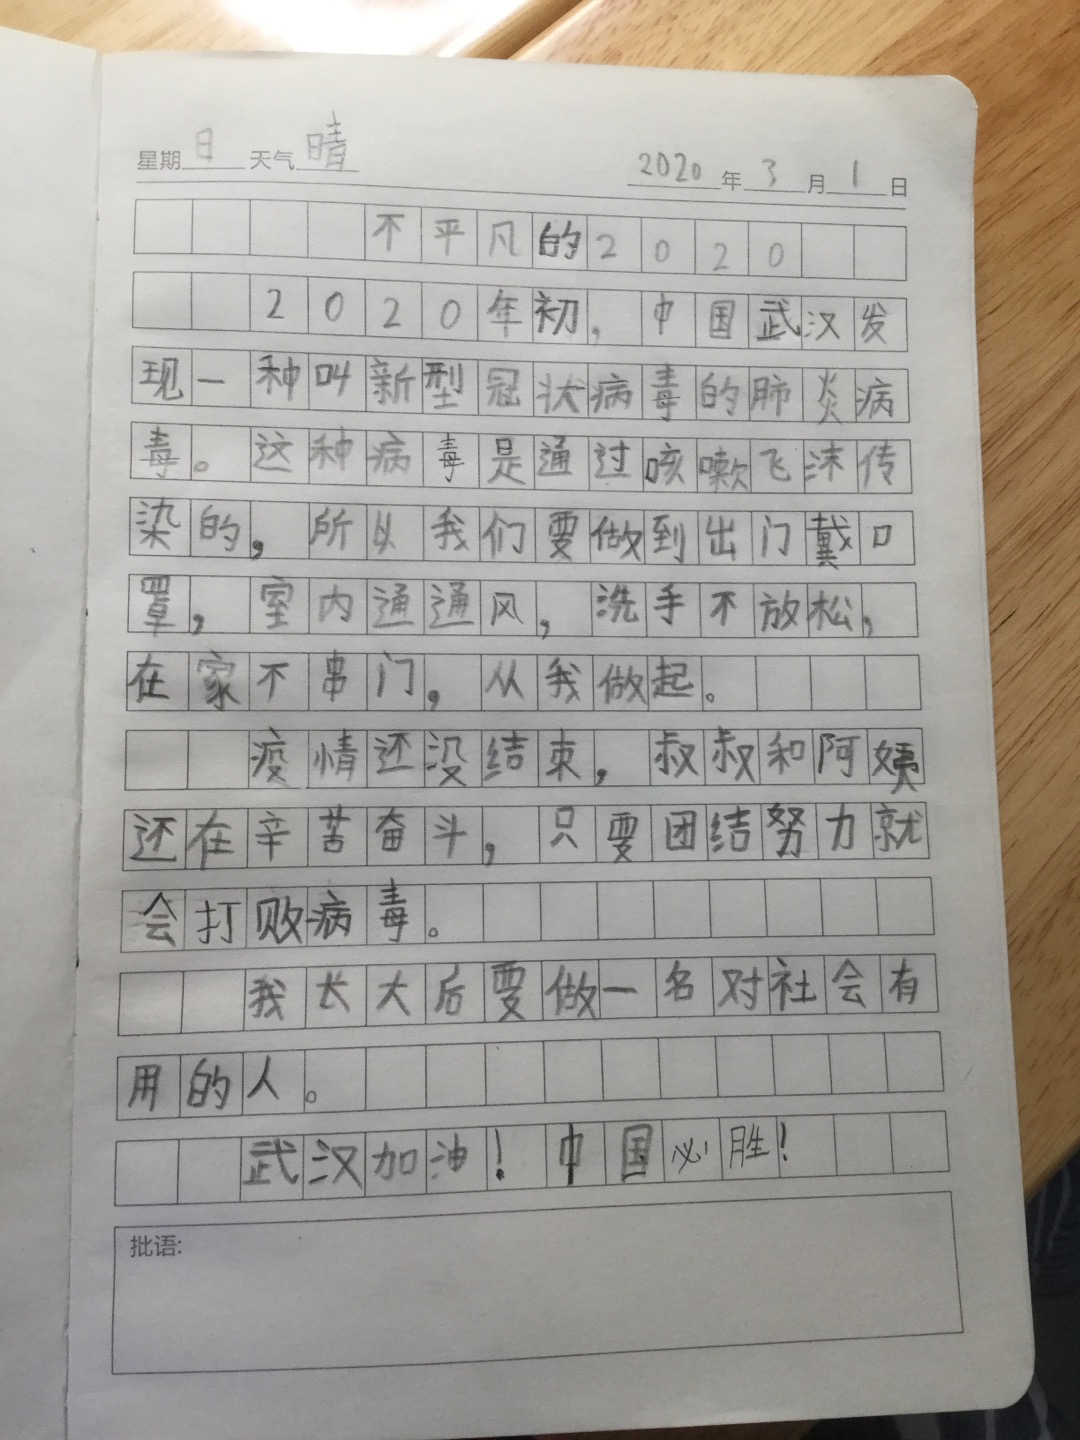 星期日 天气晴 2020年3月1日
不平凡的2020
2020年初，中国武汉发
现一种叫新型冠状病毒的肺炎病
毒。这种病毒是通过咳嗽飞沫传
染的，所以我们要做到出门戴口
罩，室内通通风，洗手不放松，
在家不串门，从我做起。
疫情还没结束，叔叔和阿姨
还在辛苦奋斗，只要团结努力就
会打败病毒。
我长大后要做一名对社会有
用的人。
武汉加油！中国必胜！
批语: